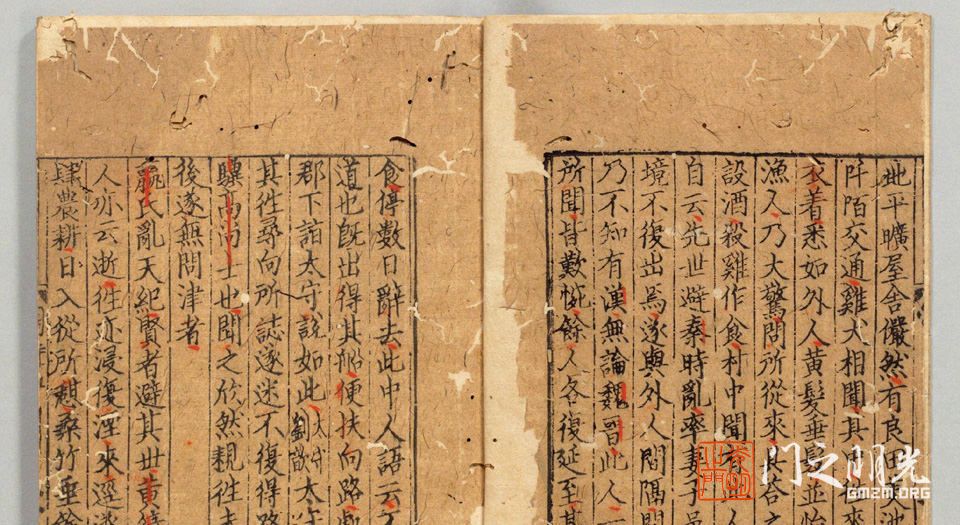 地平曠屋舍儼然有良田
阡陌交通雞犬相聞其來
衣着悉如外人黃髮垂髫並怡
漁人乃大驚問所從來具答之
設酒殺雞作食村中聞有此人
自云先世避秦時亂率妻子邑
境不復出焉遂與外人間隔問
乃不知有漢無論魏晉此人一
所聞皆歎惋餘人各復延至其
食停數日辭去此中人語云不
道也既出得其船便扶向路
郡下詣太守說如此劉歆太守
其往尋向所誌遂迷不復得路
驥高尚士也聞之欣然親往未
後遂無問津者
嬴氏亂天紀賢者避其世黃綺
人亦云逝往迹浸復湮來逕遂
肆農耕日入從所憩桑竹垂餘
门之明光
GMZM.ORG